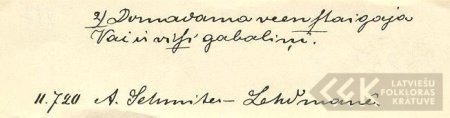 2) Domadama veen staigaja
Vai ir visi gabaliņi.
11.720 A. Schmites - Lehdmanē.
LATVIEŠU
FOLKLORAS
KRATUVE